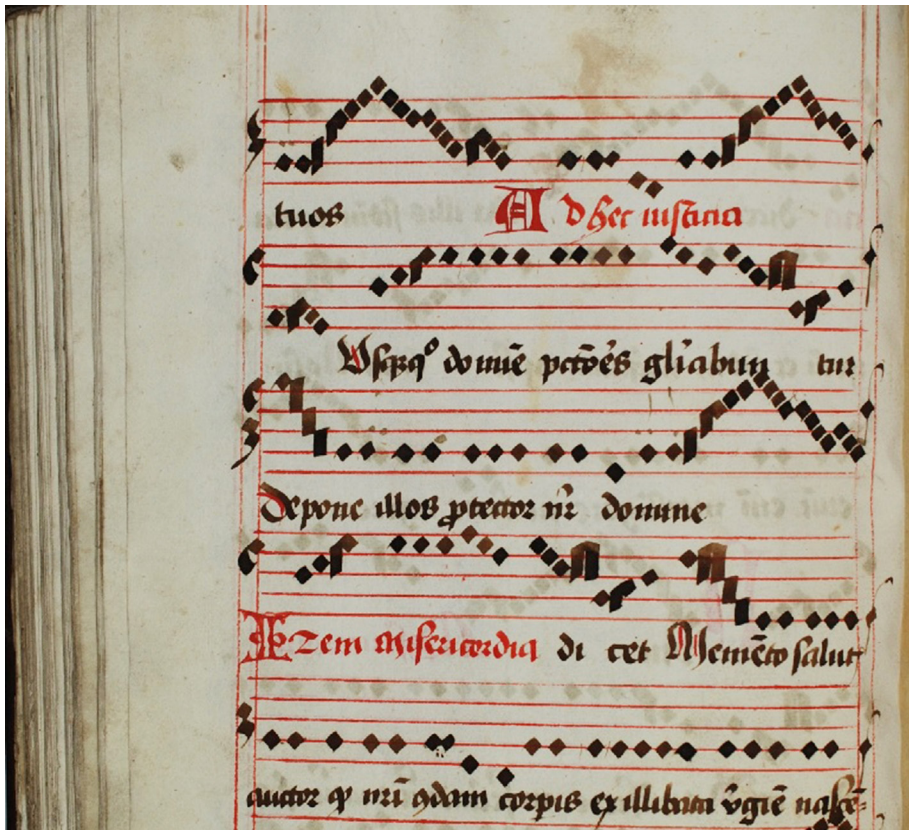 tuos Ad hec iusticia
Usq̄q° domīe pctōes gl̄iabun tur
Depone illos ꝓtector nr̄ domine
Item Misericordia di cet Memēto salut
auctor ꝙ nr̄i qdam corpis ex illibata v̄gīe nascē-